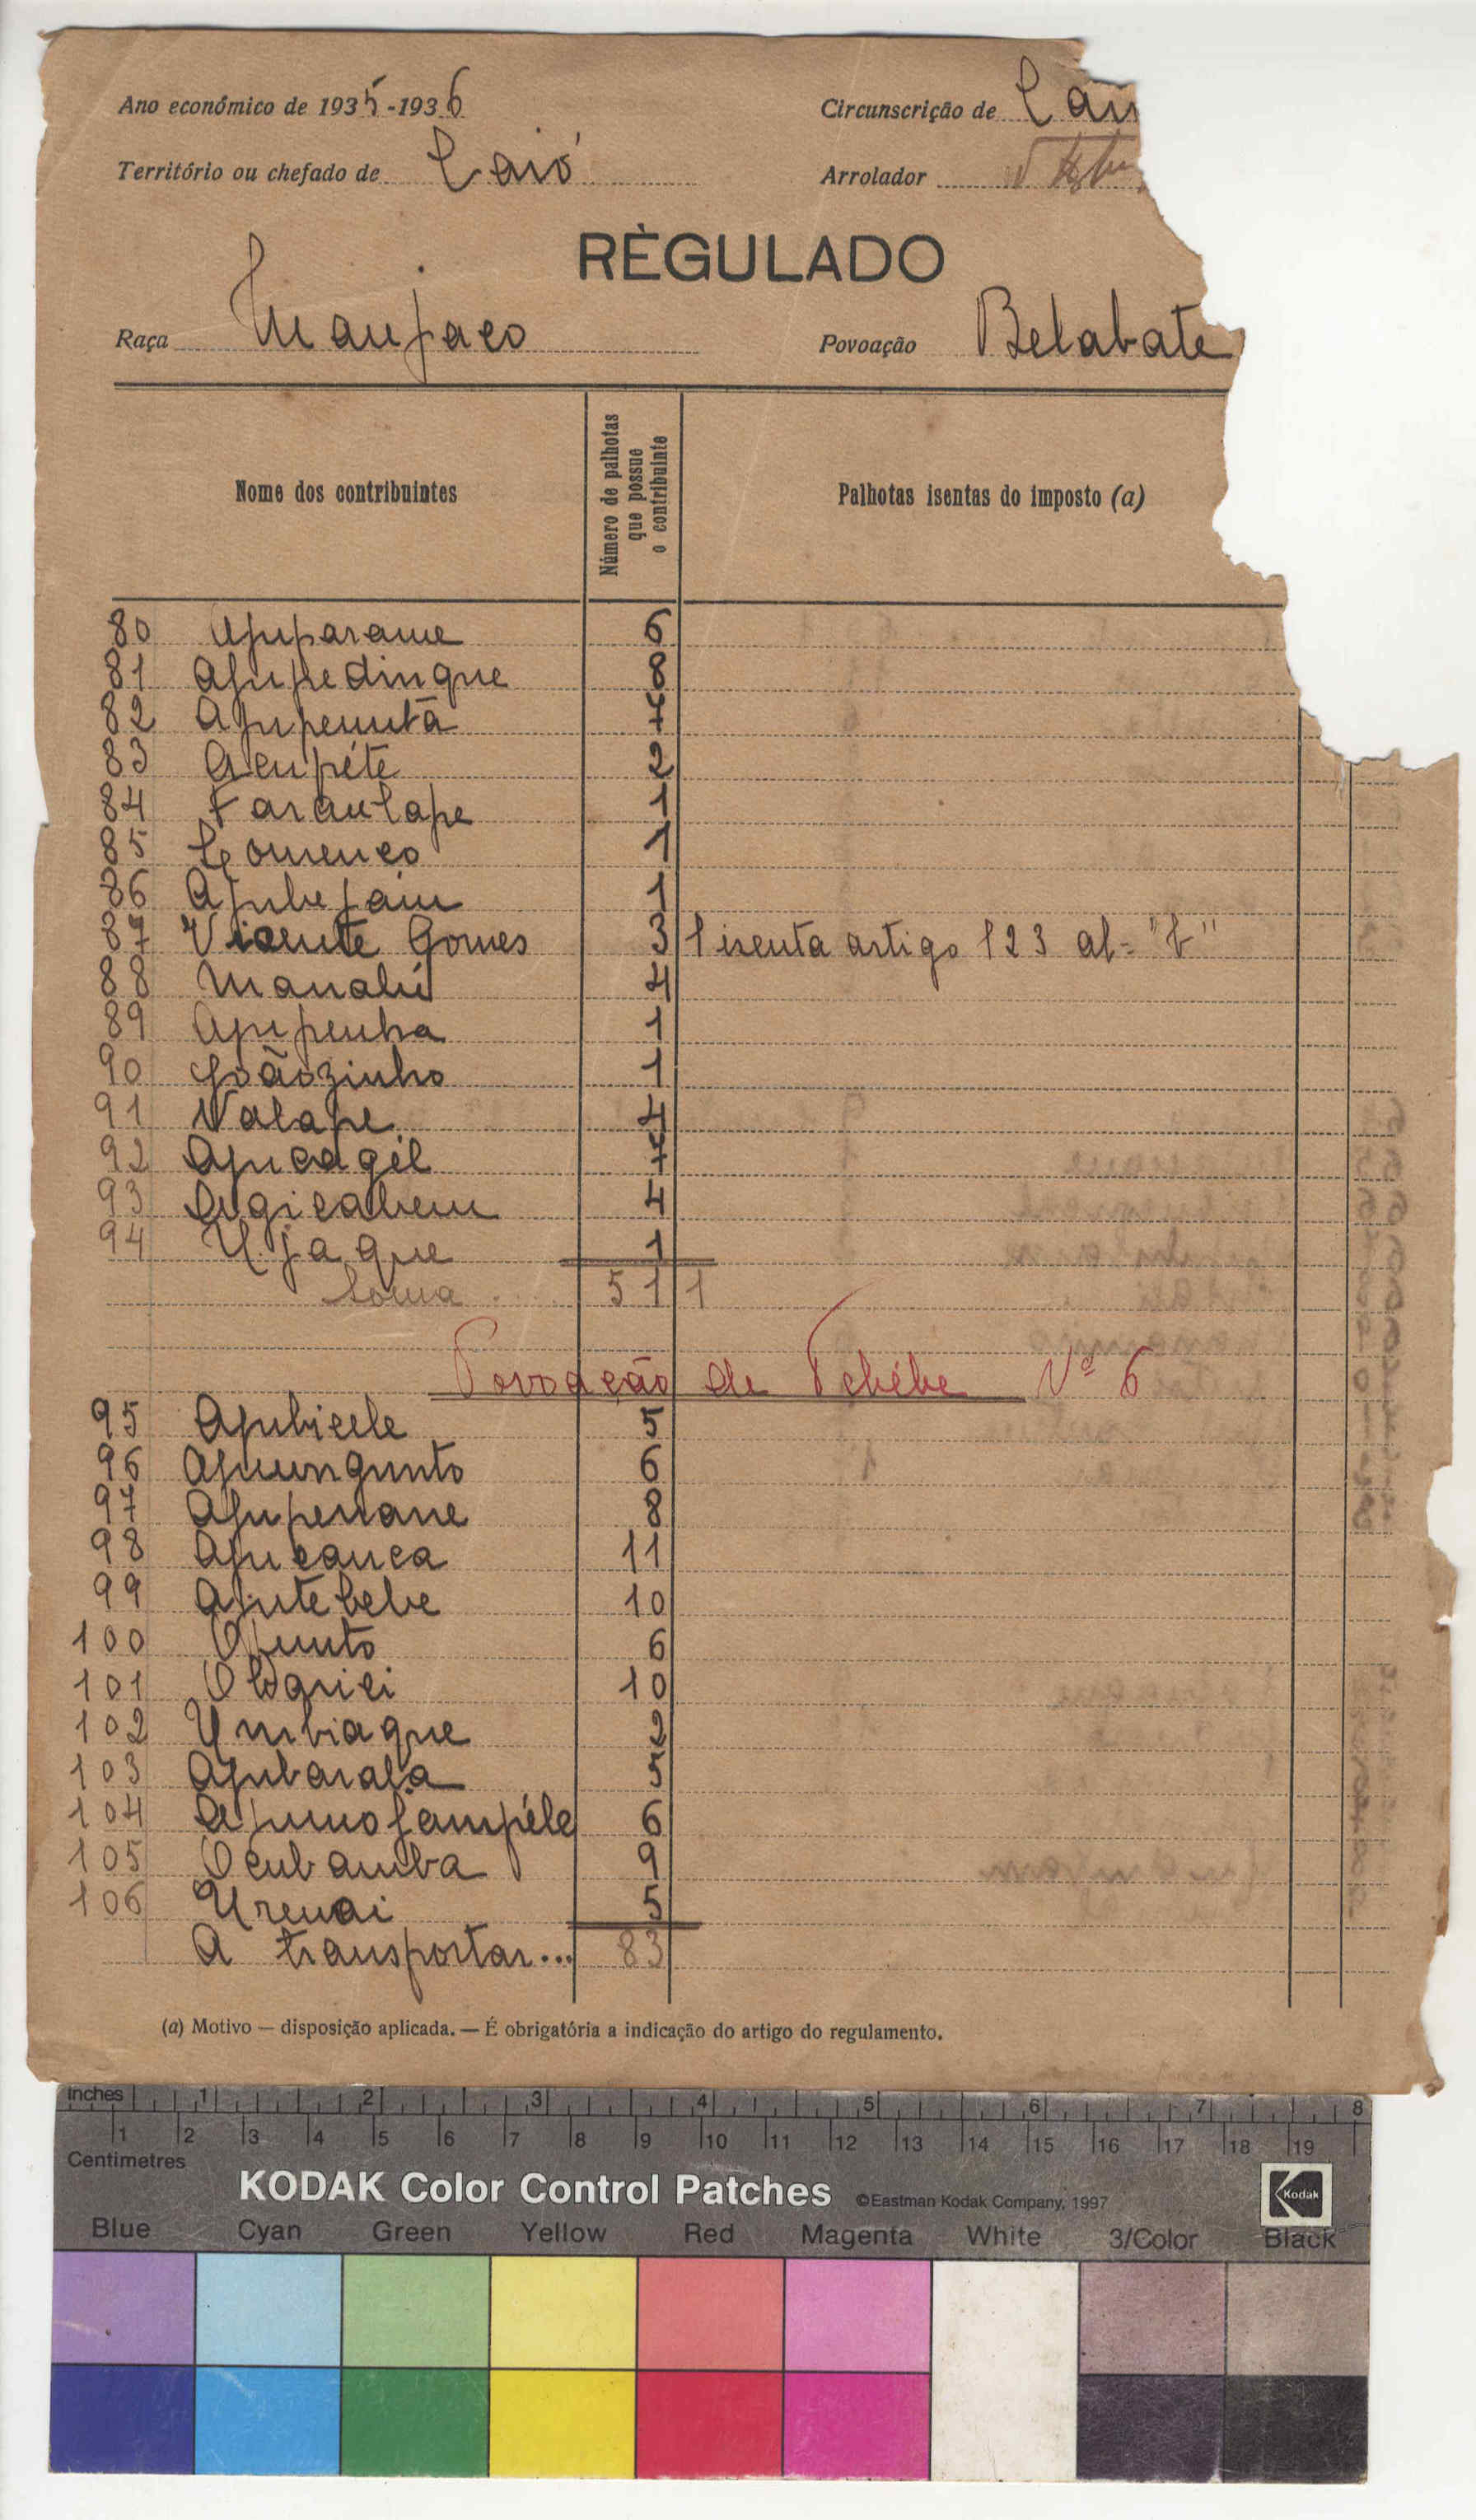 Ano económico de 1935-1936
Circunscrição de
Território ou chefado de Caió
Arrolador
RÈGULADO
Raça Manjaco
Povoação Belabate
Nome dos contribuintes
Número de palhotas que possue o contribuinte
Palhotas isentas do imposto (a)
80 Apuparame 6
81 Apupedinque 8
82 Apupenutã 7
83 Acupéte 2
84 1
85 Lourenço 1
86 Apubejam 1
87 Vicente Gomes 3 1 isenta artigo 123 al= "b"
88 Manalú 4
89 Apupenha 1
90 Joãozinho 1
91 Valape 4
92 Apucagil 7
93 4
94 Ujaque 1
Soma 51 1
Povoação de Tchébe Nº 6
95 Apubicele 5
96 6
97 Apupenane 8
98 Apucanca 11
99 Aputebebe 10
100 Opunto 6
101 10
102 Umbiaque 2
103 Apubarala 5
104 6
105 Ocubamba 9
106 Urenai 5
A transportar... 83
(a) Motivo — disposição aplicada. — É obrigatória a indicação do artigo do regulamento.
Inches 1 2 3 4 5 6 7 8
1 2 3 4 5 6 7 8 9 10 11 12 13 14 15 16 17 18 19
Centimetres
KODAK Color Control Patches ©Eastman Kodak Company, 1997 Kodak
Blue Cyan Green Yellow Red Magenta White 3/Color Black